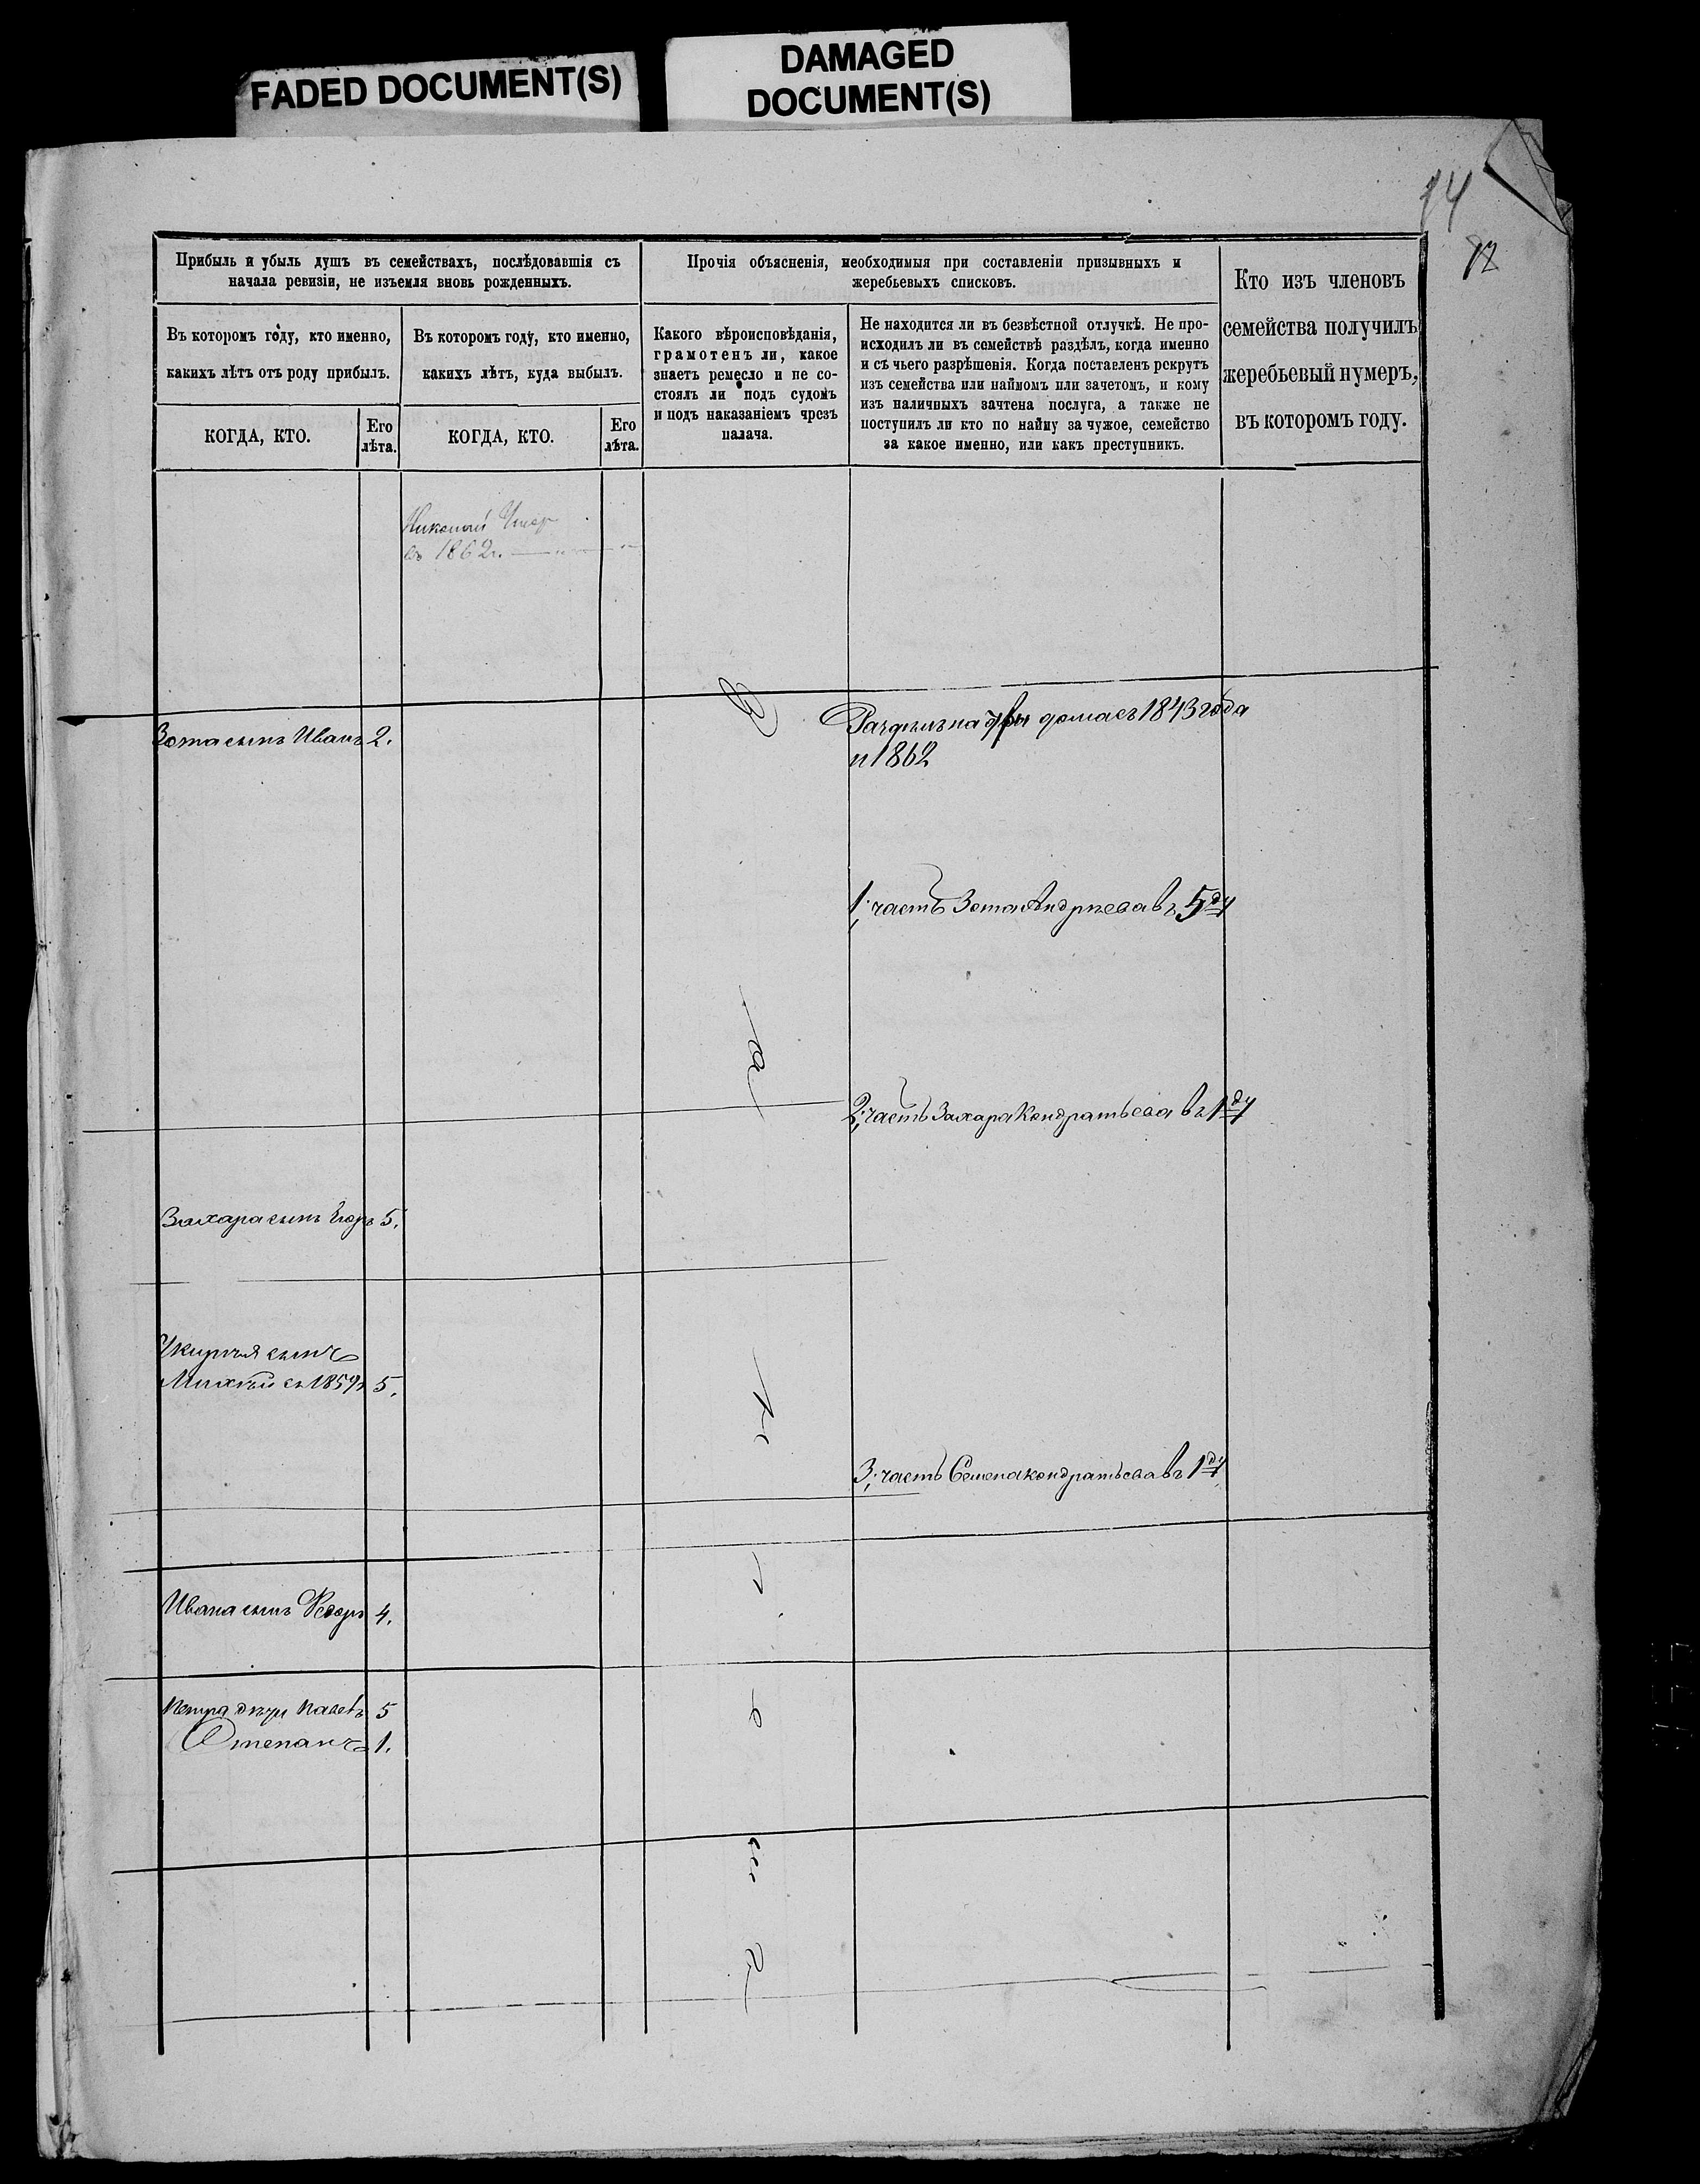 FADED DOCUMENT(S)
DAMAGED
DOCUMENT(S)
12
Прибыль и убыль душъ въ семействахъ, послѣдовавшія съ
начала ревизіи, не изъемля вновь рожденныхъ.
Прочія объясненія, необходимыя при составленіи призывныхъ и
жеребьевыхъ списковъ.
Кто изъ членовъ
семейства получилъ
жеребьевый нумеръ,
въ которомъ году.
Въ которомъ году, кто именно,
какихъ лѣтъ отъ роду прибылъ.
Въ которомъ году, кто именно,
какихъ лѣтъ, куда выбылъ.
Какого вѣроисповѣданія,
грамотенъ ли, какое
знаетъ ремесло и не со-
стоялъ ли подъ судомъ
и подъ наказаніемъ чрезъ
палача.
Не находится ли въ безвѣстной отлучкѣ. Не про-
исходилъ ли въ семействѣ раздѣлъ, когда именно
и съ чьего разрѣшенія. Когда поставленъ рекрутъ
изъ семейства или наймомъ или зачетомъ, и кому
изъ наличныхъ зачтена послуга, а также не
поступилъ ли кто по найму за чужое, семейство
за какое именно, или какъ преступникъ.
КОГДА, КТО.
Его
лѣта.
КОГДА, КТО.
Его
лѣта.
Николай Умер
въ 1862 г.
Зота сынъ Иванъ 2.
на дома съ 1843 года
и 1862
1; часть Зота Андрѣева въ 5 ду
2; часть Захара Кондратьева въ 1 ду
Захара сынъ Егоръ 5.
сынъ
Михѣй съ 1859 5.
3; часть Семена Кондратьева въ 1 ду
Ивана сынъ Федоръ 4.
Петра дѣти Павелъ 5
Степанъ 1.